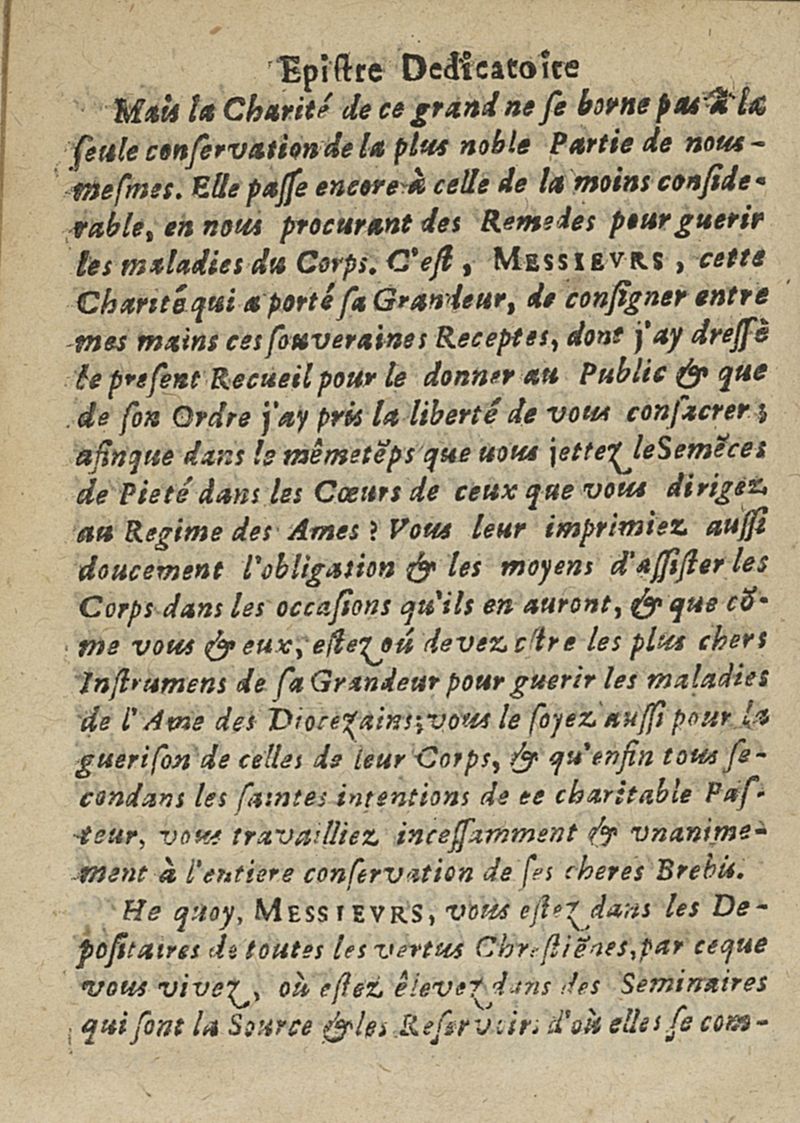 Epiſtre Dedicatoire
Mais la Charité de ce grand ne ſe borne pas à la
ſeule conſervation de la plus noble Partie de nous-
meſmes. Elle paſſe encore à celle de la moins conſide-
rable, en nous procurant des Remedes pour guerir
les maladies du Corps. C'eſt, MESSIEVRS, cette
Charité qui a porté ſa Grandeur, de conſigner entre
mes mains ces ſouveraines Receptes, dont j'ay dreſſè
le preſent Recueil pour le donner au Public & que
de ſon Ordre j'ay pris la liberté de vous conſacrer;
afinque dans le mêmetẽps que uous jettez leSemẽces
de Pieté dans les Cœurs de ceux que vous dirigez
au Regime des Ames? Vous leur imprimiez auſſi
doucement l'obligation & les moyens d'aſſiſter les
Corps dans les occaſions qu'ils en auront, & que cõ-
me vous & eux, eſtez oú devez eſtre les plus chers
Inſtrumens de ſa Grandeur pour guerir les maladies
de l'Ame des Diocezains; vous le ſoyez auſſi pour la
gueriſon de celles de leur Corps, & qu'enfin tous ſe-
condans les ſaintes intentions de ee charitable Paſ-
teur, vous travailliez inceſſamment & vnanime-
ment à l'entiere conſervation de ſes cheres Brebis.
He quoy, MESSIEVRS, vous eſtez dans les De-
poſitaires de toutes les vertus Chreſtiẽnes, par ceque
vous vivez, où eſtez êlevez dans des Seminaires
qui ſont la Source & les Reſervoirs d'où elles ſe com-